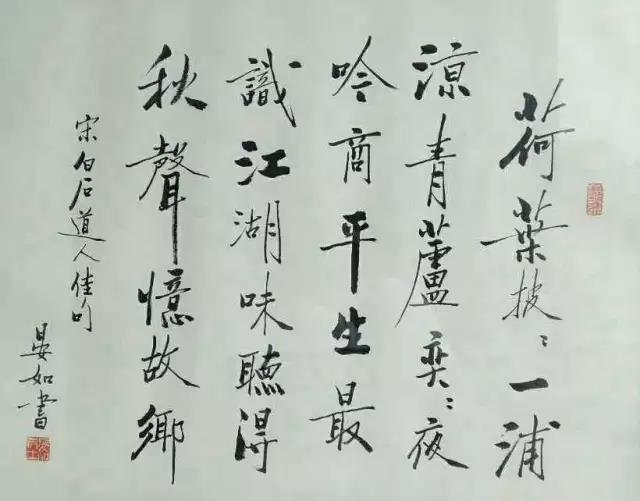 荷葉披〻一浦
涼青蘆奕〻夜
吟商平生最
識江湖味聽得
秋聲憶故鄉
宋白石道人佳句
晏如書